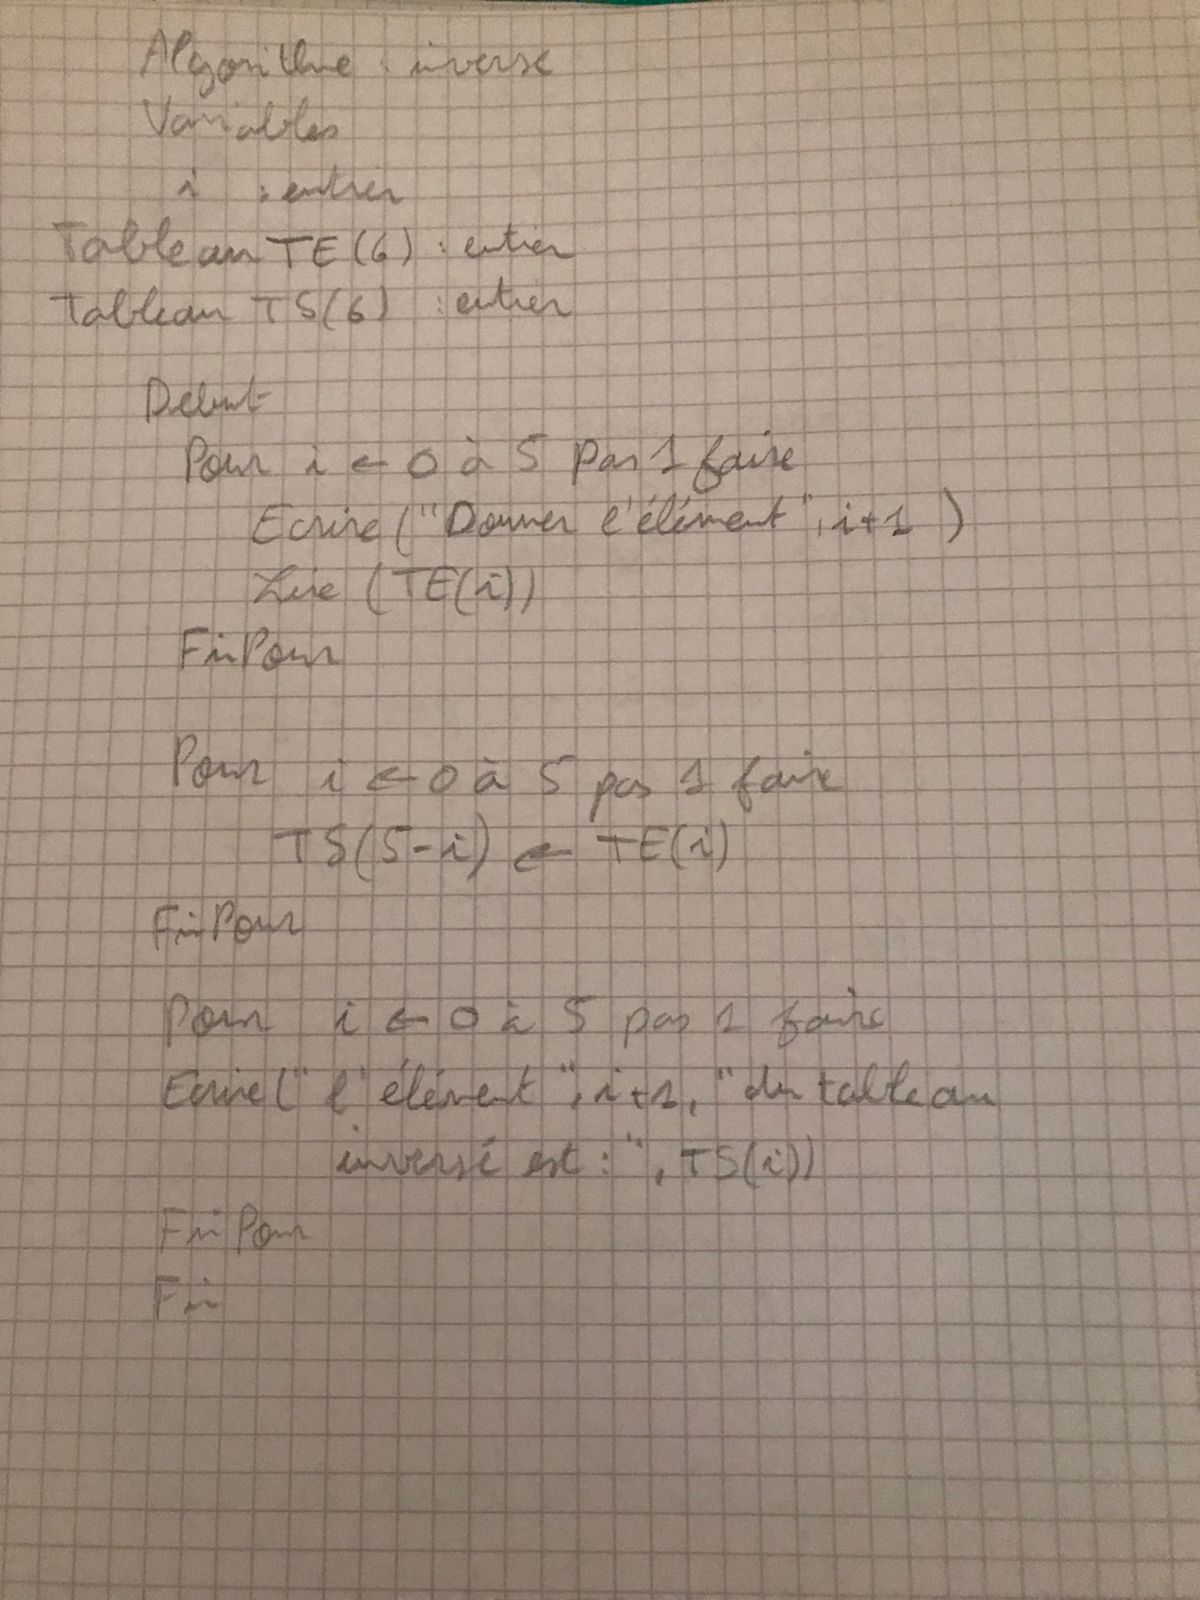 Algorithme : inverse
Variables
i : entier
Tableau TE(6) : entier
Tableau TS(6) : entier
Debut
Pour i ← 0 à 5 pas 1 faire
Ecrire ("Donner l'élément", i+1 )
Lire (TE(i))
FinPour
Pour i ← 0 à 5 pas 1 faire
TS(5-i) ← TE(i)
FinPour
Pour i ← 0 à 5 pas 1 faire
Ecrire(" l'élément", i+1, "du tableau
inversé est : ", TS(i))
FinPour
Fin